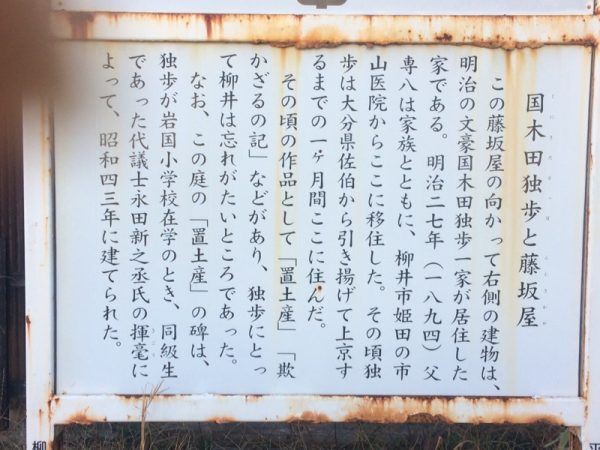 国木田独歩と藤坂屋
この藤坂屋の向かって右側の建物は、
明治の文豪国木田独歩一家が居住した
家である。明治二七年(一八九四)父
専八は家族とともに、柳井市姫田の市
山医院からここに移住した。その頃独
歩は大分県佐伯から引き揚げて上京す
るまでの一ヶ月間ここに住んだ。
その頃の作品として「置土産」「欺
かざるの記」などがあり、独歩にとっ
て柳井は忘れがたいところであった。
なお、この庭の「置土産」の碑は、
独歩が岩国小学校在学のとき、同級生
であった代議士永田新之丞氏の揮毫に
よって、昭和四三年に建てられた。
柳